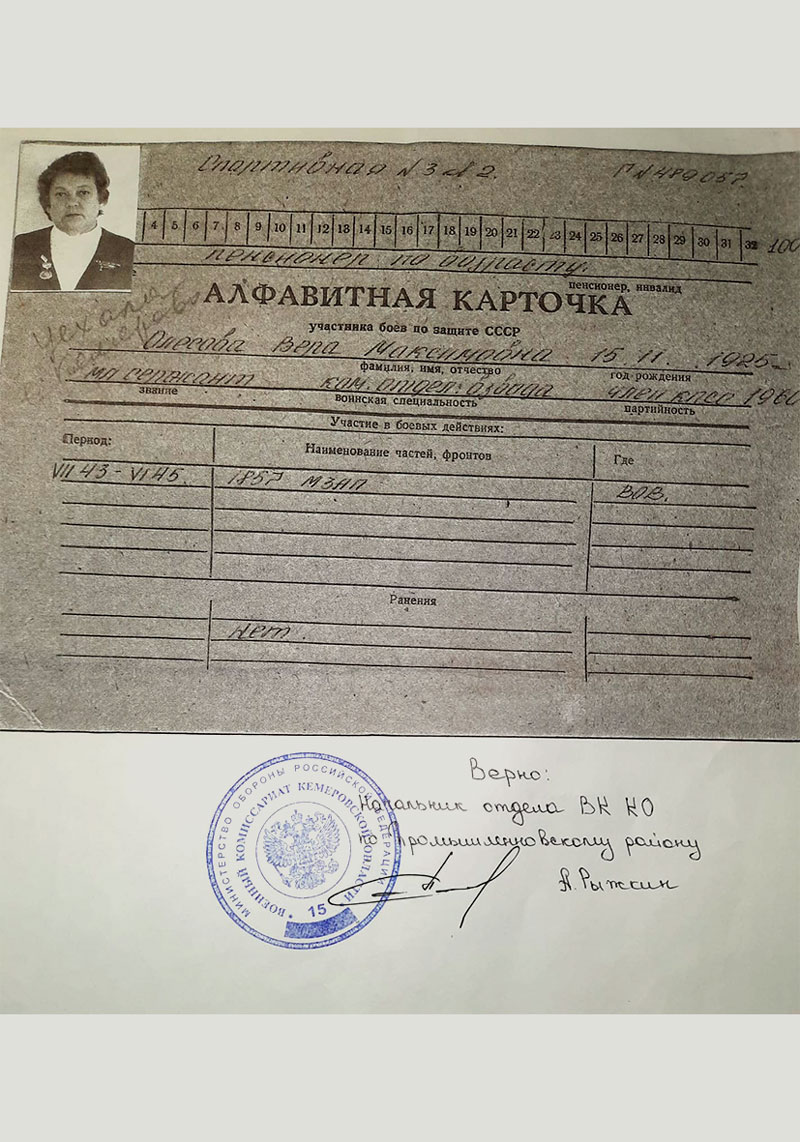 Спортивная N 3 N 2. Г N 489057
4 5 6 7 8 9 10 11 12 13 14 15 16 17 18 19 20 21 22 23 24 25 26 27 28 29 30 31 32 100
пенсионер по возрасту.
пенсионер, инвалид
АЛФАВИТНАЯ КАРТОЧКА
участника боев по защите СССР
Уехала
Олесова Вера Максимовна 15 11. 1925
фамилия, имя, отчество год рождения
мл сержант ком. отдел. взвода член кпсс 1960
звание воинская специальность партийность
Участие в боевых действиях:
Период: Наименование частей, фронтов Где
VII 43 - VI 45. 1857 МЗАП ВОВ.
Ранения
Нет.
Верно:
Начальник отдела ВК КО
по Промышленновскому району
А. Рыжкин
МИНИСТЕРСТВО ОБОРОНЫ РОССИЙСКОЙ ФЕДЕРАЦИИ
ВОЕННЫЙ КОМИССАРИАТ КЕМЕРОВСКОЙ ОБЛАСТИ
15